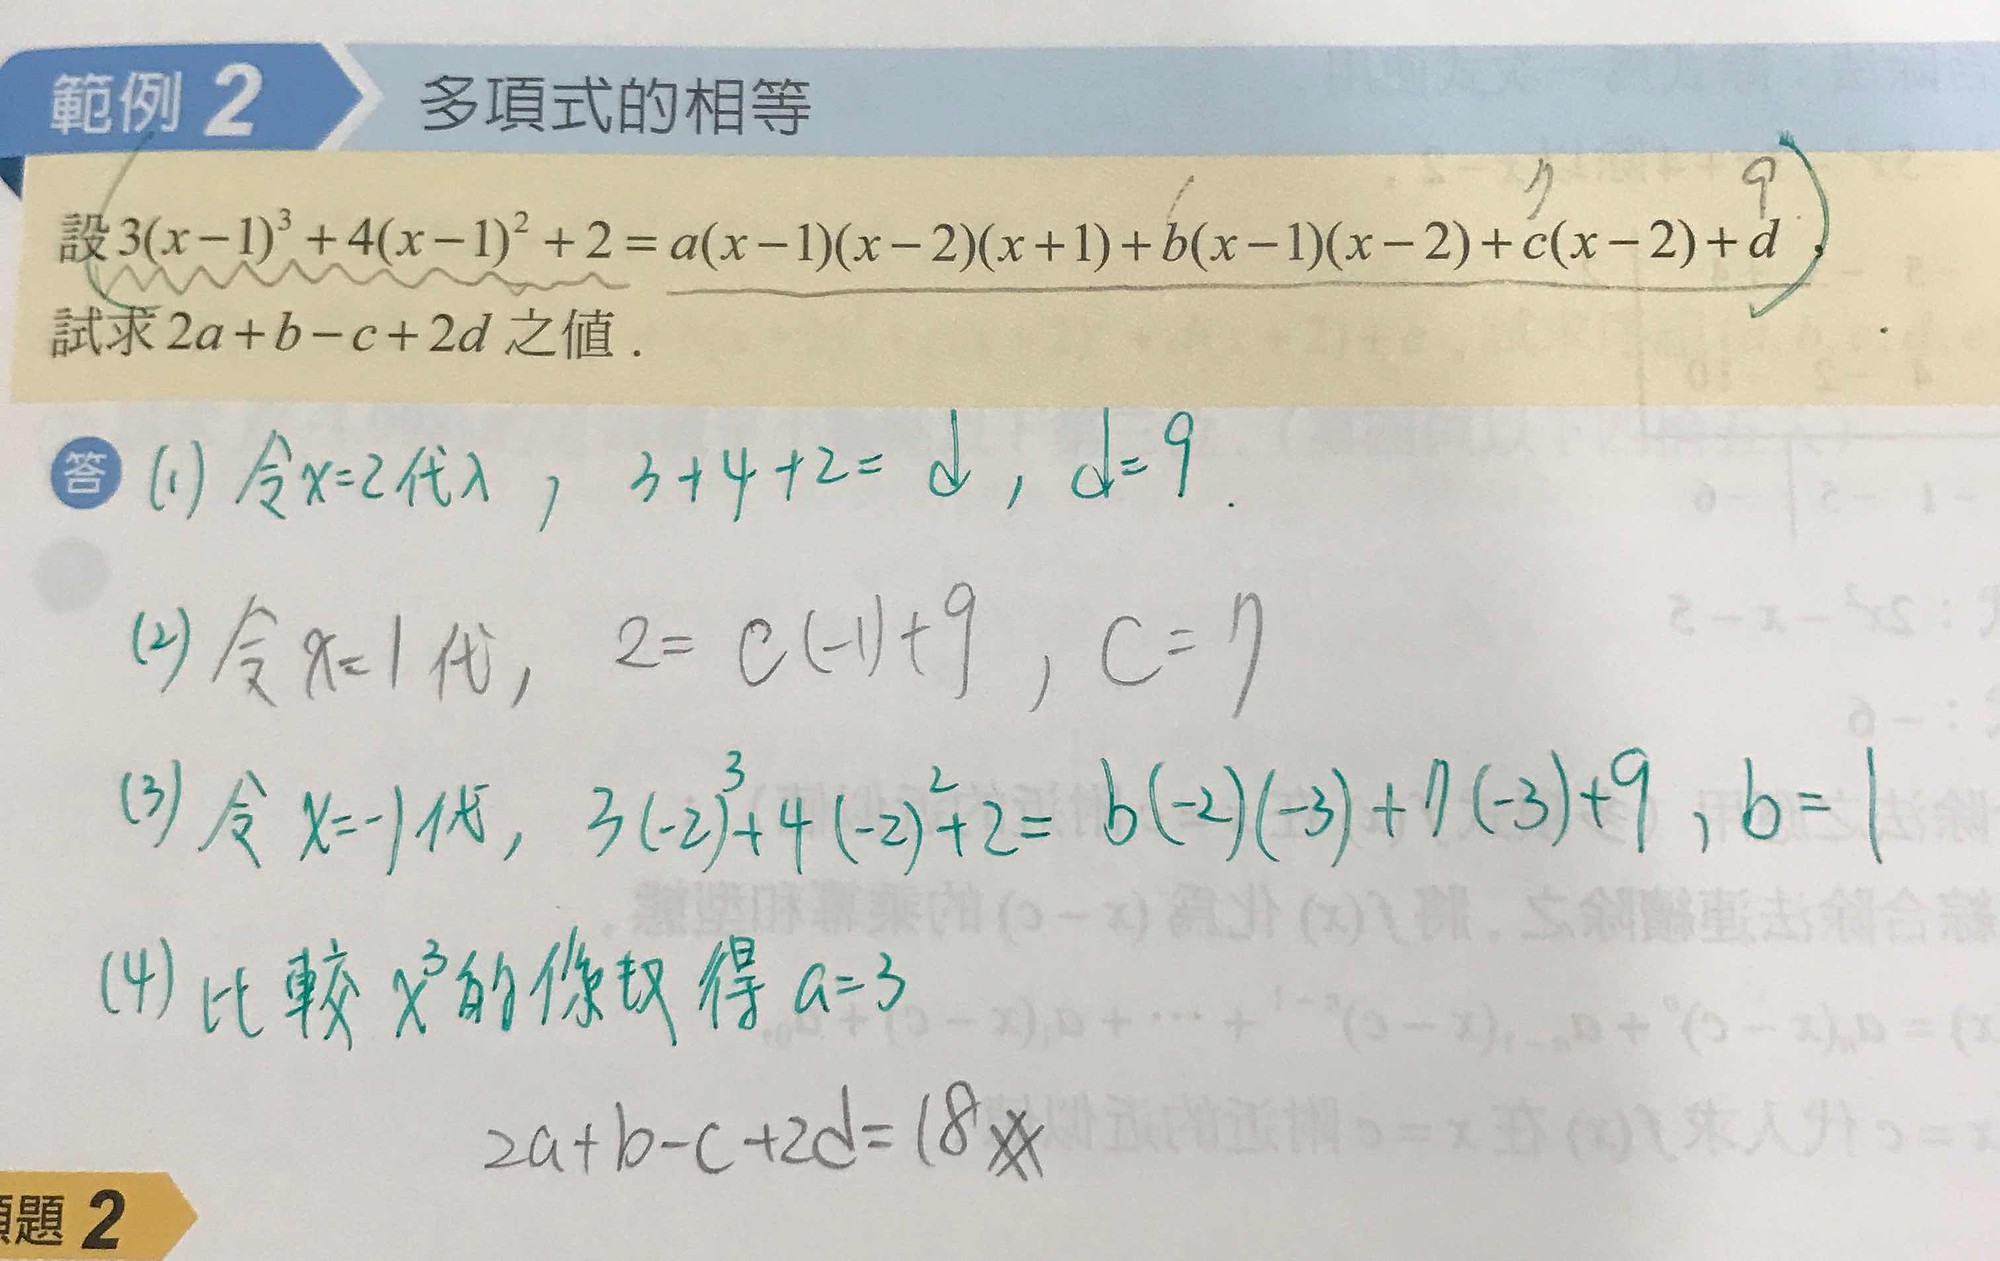 範例 2 多項式的相等
1 7 9
設 3(x−1)³+4(x−1)²+2=a(x−1)(x−2)(x+1)+b(x−1)(x−2)+c(x−2)+d,
試求 2a+b−c+2d 之值.
答 (1) 令x=2代入, 3+4+2=d, d=9.
(2) 令x=1代, 2=c(-1)+9, c=7
(3) 令x=-1代, 3(-2)³+4(-2)²+2=b(-2)(-3)+7(-3)+9, b=1
(4) 比較x³的係数得 a=3
2a+b-c+2d=18
題 2